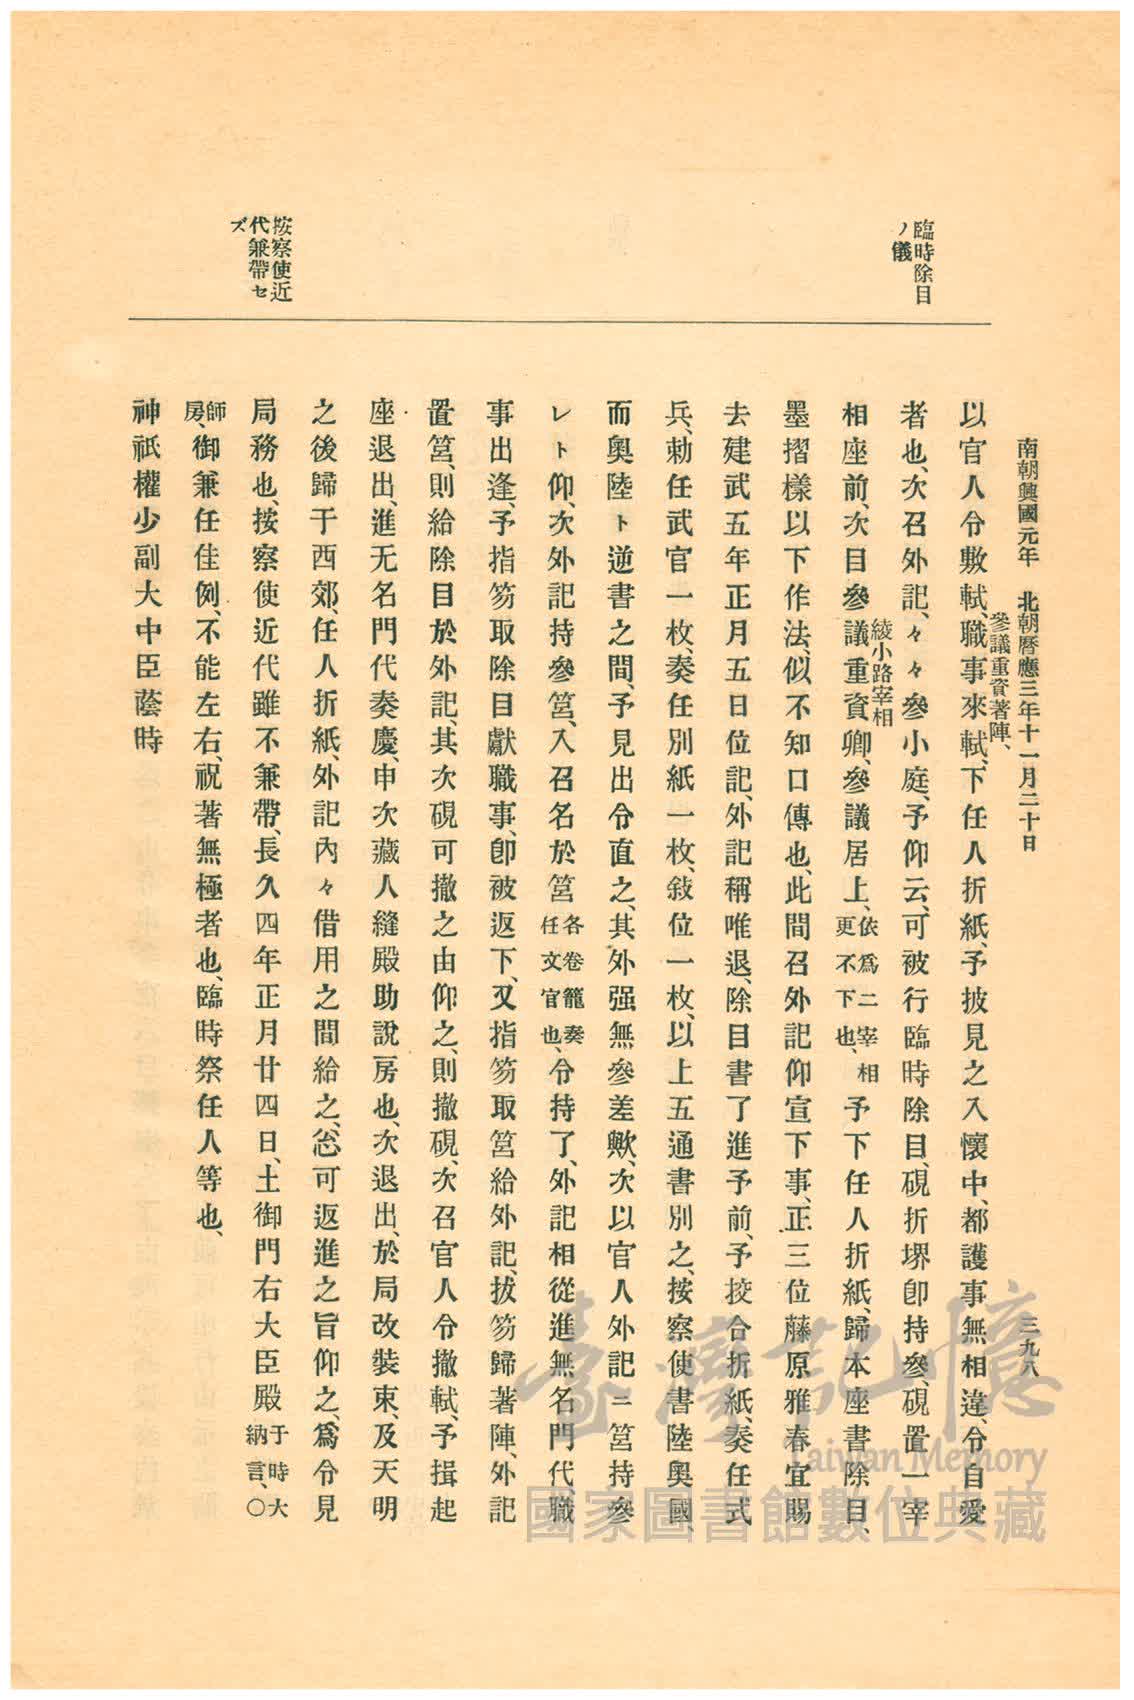 南朝興國元年 北朝曆應三年十一月二十日 三九八
臨時除目
ノ儀
按察使近
代兼帶セ
ズ
參議重資著陣、
以官人令敷軾、職事來軾、下任人折紙、予披見之入懷中、都護事無相違、令自愛
者也、次召外記、々々參小庭、予仰云、可被行臨時除目、硯折堺卽持參、硯置一宰
相座前、次目參議重資卿、參議居上、依爲二宰相更不下也、予下任人折紙、歸本座書除目、
綾小路宰相
墨摺樣以下作法、似不知口傳也、此間召外記仰宣下事、正三位藤原雅春宜賜
去建武五年正月五日位記、外記稱唯退、除目書了進予前、予挍合折紙、奏任式
兵、勅任武官一枚、奏任別紙一枚、敍位一枚、以上五通書別之、按察使書陸奧國、
而奧陸ト逆書之間、予見出令直之、其外强無參差歟、次以官人外記ニ筥持參
レト仰、次外記持參筥、入召名於筥各卷籠奏任文官也、令持了、外記相從進無名門代、職
事出逢、予指笏取除目獻職事、卽被返下、又指笏取筥給外記、拔笏歸著陣、外記
置筥、則給除目於外記、其次硯可撤之由仰之、則撤硯、次召官人令撤軾、予揖起
座退出、進无名門代奏慶、申次藏人縫殿助說房也、次退出、於局改裝束、及天明
之後歸于西郊、任人折紙、外記內々借用之間給之、忩可返進之旨仰之、爲令見
局務也、按察使近代雖不兼帶、長久四年正月廿四日、土御門右大臣殿于時大納言、〇
師房、御兼任佳例、不能左右、祝著無極者也、臨時祭任人等也、
神祇權少副大中臣蔭時
臺灣記憶
Taiwan Memory
國家圖書館數位典藏